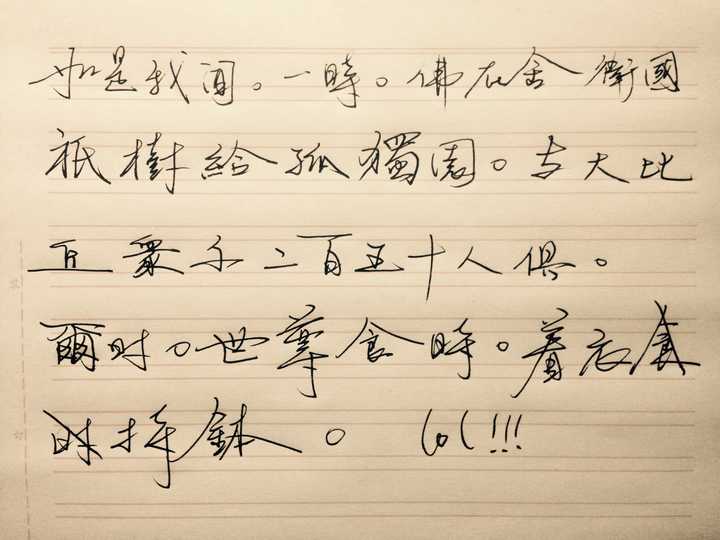 如是我聞。一時。佛在舍衛國
祇樹給孤獨園。与大比
丘眾千二百五十人俱。
爾时。世尊食時。着衣食
时持鉢。 lol!!!